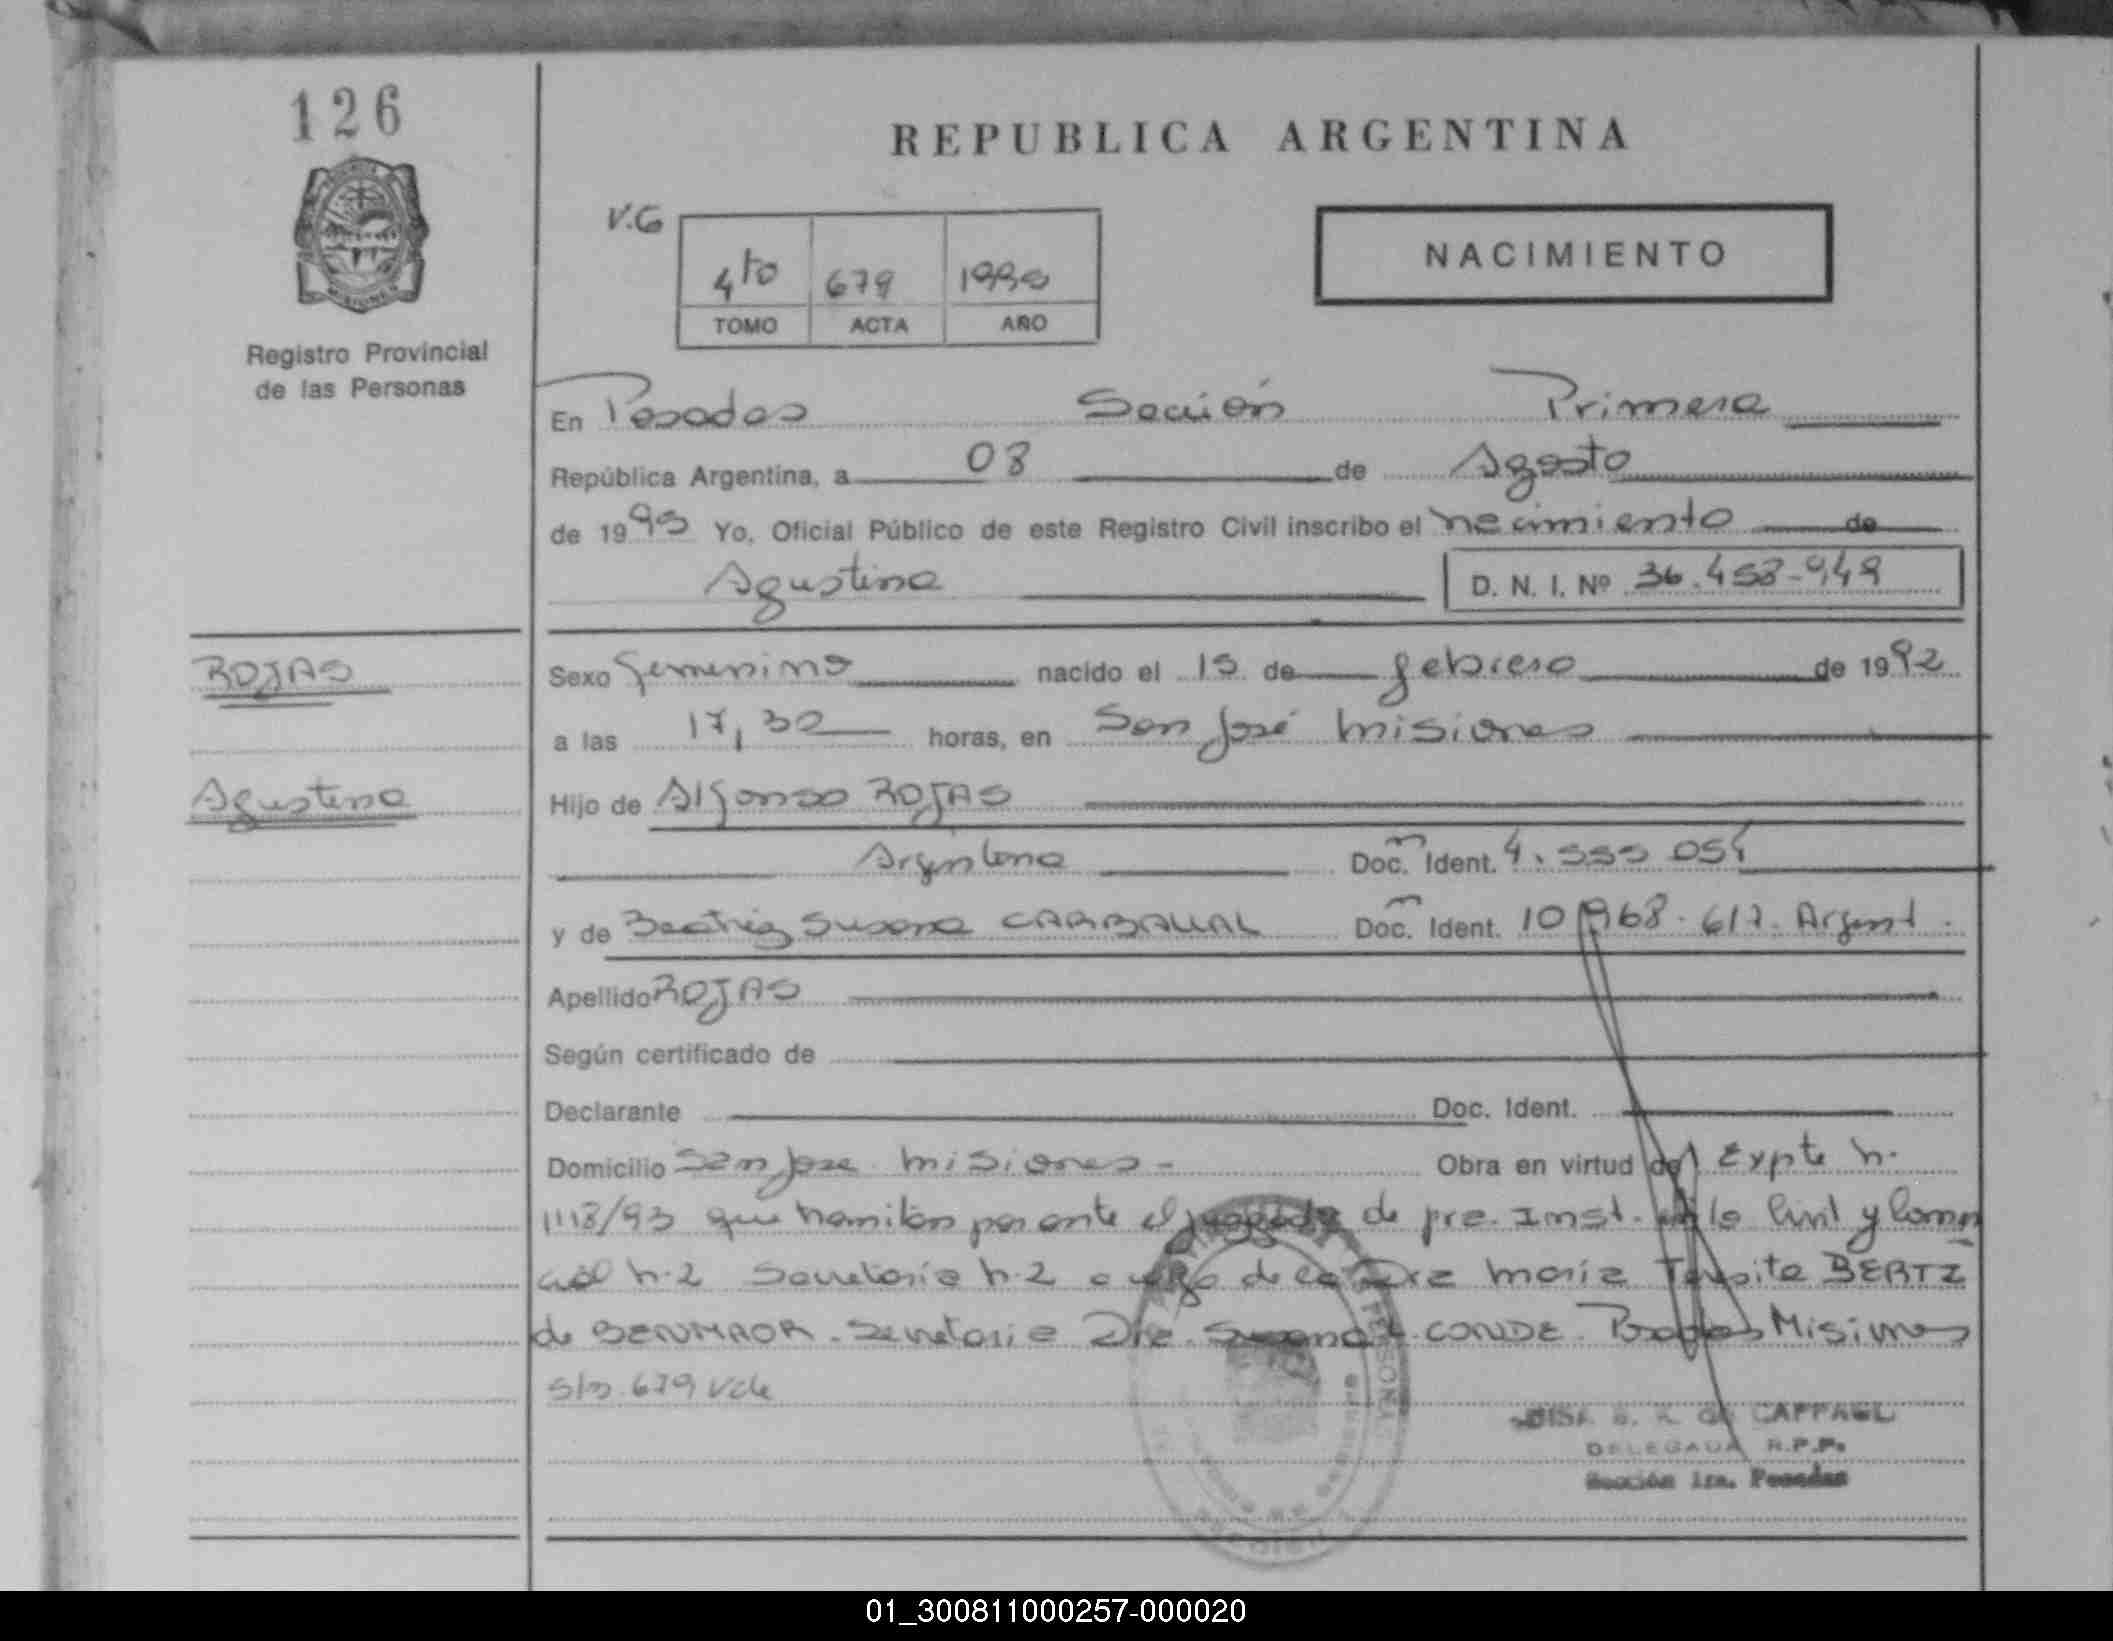 126
REPUBLICA ARGENTINA
V.G
4to 679 1995
TOMO ACTA AÑO
NACIMIENTO
Registro Provincial
de las Personas
En Posadas Sección Primera
República Argentina, a 08 de Agosto
de 1995 Yo, Oficial Público de este Registro Civil inscribo el nacimiento de
Agustina D. N. I. Nº 36.458-949
ROJAS
Sexo femenino nacido el 15 de febrero de 1992
a las 17,30 horas, en San José Misiones
Agustina
Hijo de Alfonso ROJAS
Argentino Doc. Ident. 4.555 054
y de Beatriz Susana CARBALLAL Doc. Ident. 10.968.617. Argent.
Apellido ROJAS
Según certificado de
Declarante Doc. Ident.
Domicilio San Jose Misiones - Obra en virtud de Expte n.
1118/93 que tramitan por ante el juzgado de pre. Inst. en lo Civil y Comer
cial n.2 Secretaria n.2 a cargo de la Dra Maria BERTZ
de BENMAOR. Secretaria Dra. Susana CONDE. Posadas Misiones
s/n. 679 Vale
CAPPAGLI
DELEGADA R.P.P.
Sección 1ra. Posadas
01_300811000257-000020